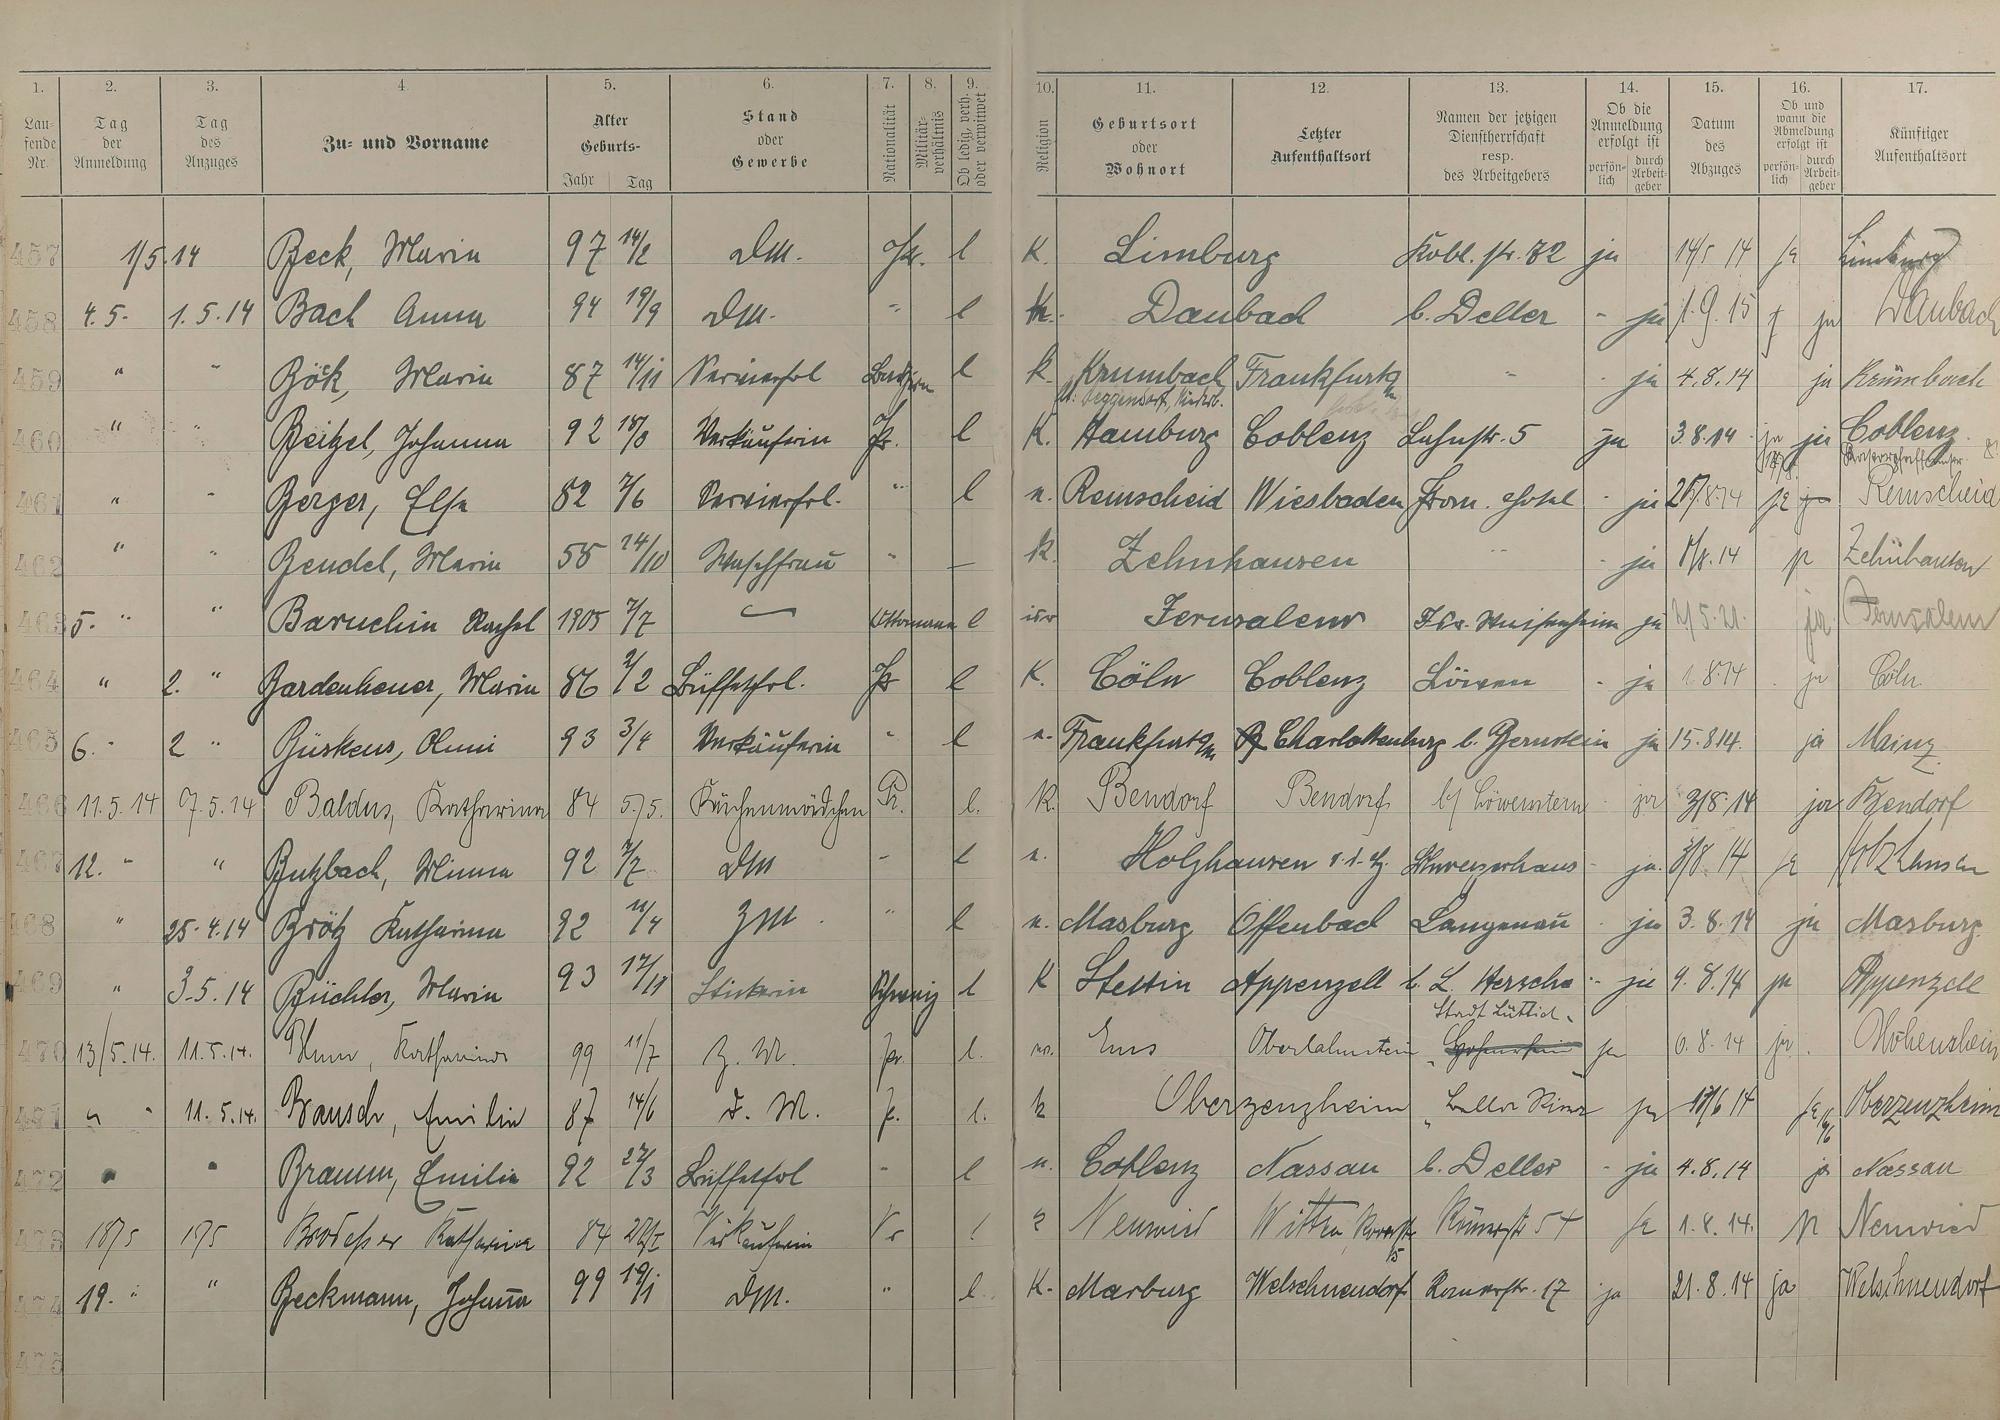 1. 2. 3. 4. 5. 6. 7. 8. 9. 10. 11. 12. 13. 14. 15. 16. 17.
Laufende Nr. Tag der Anmeldung Tag des Anzuges Zu- und Vorname Alter Geburts- Jahr Tag Stand oder Gewerbe Nationalität Militärverhältnis Ob ledig, verh. oder verwitwet Religion Geburtsort oder Wohnort Letzter Aufenthaltsort Namen der jetzigen Dienstherrschaft resp. des Arbeitgebers Ob die Anmeldung erfolgt ist persönlich durch Arbeitgeber Datum des Abzuges Ob und wann die Abmeldung erfolgt ist persönlich durch Arbeitgeber Künftiger Aufenthaltsort
457 1/5.14 Beck, Maria 97 14/2 DM. Pr. l K. Limburg Kobl. str. 82 ja 14/5 14 ja Limburg
458 4.5. 1.5.14 Bach Anna 94 19/9 DM. " l Daubach b. Deller - ja 1.9.15 ja Daubach
459 " " Böck, Maria 87 14/11 Servierfrl l k. Krumbach Frankfurt a/m " - ja 4.8.14 ja Krumbach
460 " " Beitzel, Johanna 92 Verkäuferin Pr. l K. Hamburg Coblenz Lahnstr. 5 ja 3.8.14 ja ja Coblenz
461 " " Berger, Else 82 7/6 Servierfrl. " l e. Remscheid Wiesbaden Hotel - ja ja Remscheid
462 " " Bendel, Maria 24/10 Waschfrau " — k. Zehnhausen " - ja 14 ja Zehnhausen
463 5. " " Baruchin Rachel 1905 7/7 — Ottomane l isr Jerusalem Isr. Waisenheim ja 5.21. ja Jerusalem
464 " 2. " Bardenheuer, Maria 86 2/2 Büffetfrl. Pr l K. Cöln Coblenz Löwen - ja 1.8.14 - ja Cöln
465 6. " 2 " Büskens, Änni 93 3/4 Verkäuferin " l e. Frankfurt a/m Charlottenburg b. Bernstein ja 15.8.14. ja Mainz
466 11.5.14 7.5.14 Baldus, Katharina 84 5/5. Küchenmädchen Pr. l. K. Bendorf Bendorf b/ Löwenstein - ja 3/8.14 ja Bendorf
467 12. " " Butzbach, Minna 92 DM " l e. Holzhausen - ja. 14 ja Holzhausen
468 " 25.4.14 Brötz Katharina 92 11/4 ZM. " l e. Masburg Offenbach Langenau - ja 3.8.14 ja Masburg
469 " 3.5.14 Büchler, Maria 93 17/11 Stickerin Schweiz l K Stettin Appenzell b. L. Hersche - ja 9.8.14 ja Appenzell
Stadt Lüttich
470 13/5.14. 11.5.14. Blum, Katharina 99 11/7 Z. M. pr. l. Ems Oberlahnstein ja 6.8.14 ja. Hohenstein
471 " " 11.5.14. Bausch, Emilie 87 14/6 D. M. p. l. k Oberzeuzheim ja 17/6 14 ja Oberzeuzheim
472 " " Braun, Emilie 92 27/3 Büffetfrl " l e. Coblenz Nassau b. Deller - ja 4.8.14 ja Nassau
473 18/5 17/5 Brodesser Katharina 84 Verkäuferin Pr l Neuwied Witten Römerstr 54 ja 1.8.14. ja Neuwied
474 19. " " Beckmann, Johanna 99 19/1 DM. " l. K. Marburg Welschneudorf Römerstr. 17 ja 21.8.14 ja Welschneudorf
475